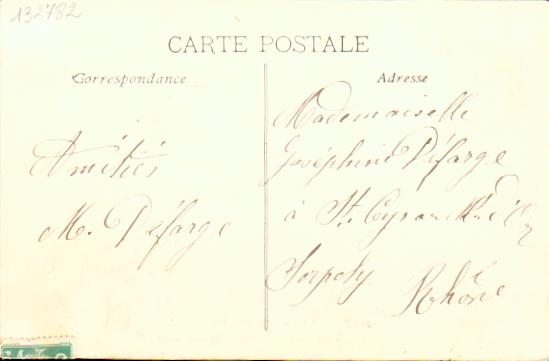 132782
CARTE POSTALE
Correspondance
Amitiés
M. Défarge
Adresse
Mademoiselle
Joséphine Défarge
à St. Cyr au Mt. d'Or
Rhône